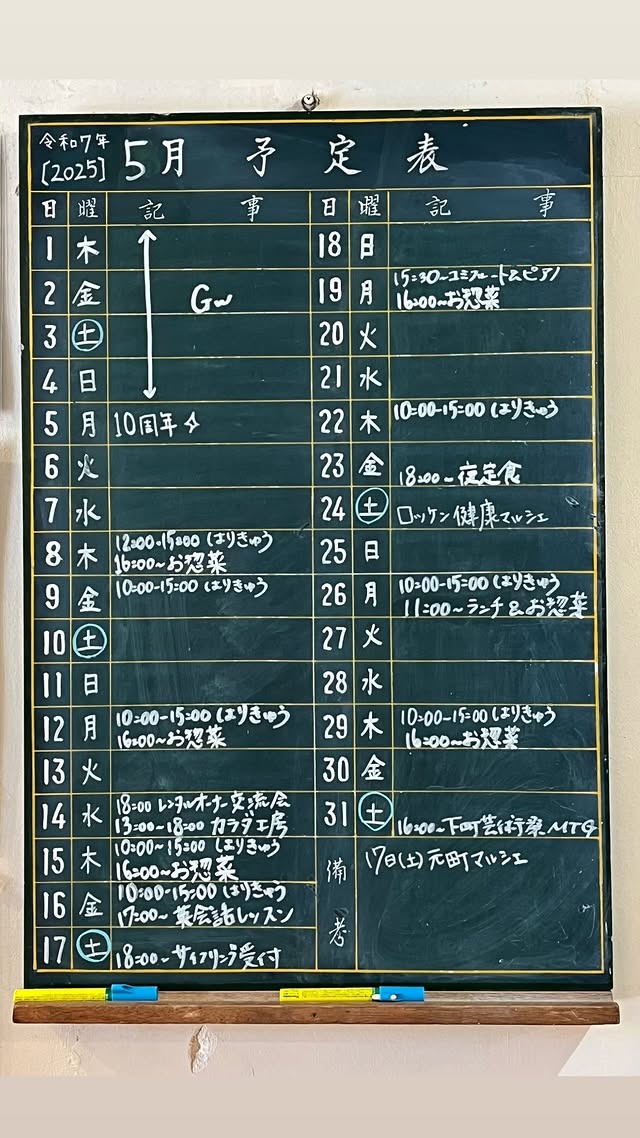 令和7年
[2025]
5月 予定表
日 曜 記事
1 木
GW
2 金
3 土
4 日
5 月 10周年
6 火
7 水
8 木 12:00-15:00 はりきゅう
16:00~お惣菜
9 金 10:00-15:00 はりきゅう
10 土
11 日
12 月 10:00-15:00 はりきゅう
16:00~お惣菜
13 火
14 水 18:00 レンタルオーナー交流会
13:00~18:00 カラダ工房
15 木 10:00~15:00 はりきゅう
16:00~お惣菜
16 金 10:00-15:00 はりきゅう
17:00~英会話レッスン
17 土 18:00~ 受付
日 曜 記事
18 日
19 月 15:30~ &ピアノ
16:00~お惣菜
20 火
21 水
22 木 10:00-15:00 はりきゅう
23 金 18:00~夜定食
24 土 ロッケン健康マルシェ
25 日
26 月 10:00-15:00 はりきゅう
11:00~ランチ&お惣菜
27 火
28 水
29 木 10:00-15:00 はりきゅう
16:00~お惣菜
30 金
31 土 16:00~下町芸術祭MTG
備考 17日(土)元町マルシェ